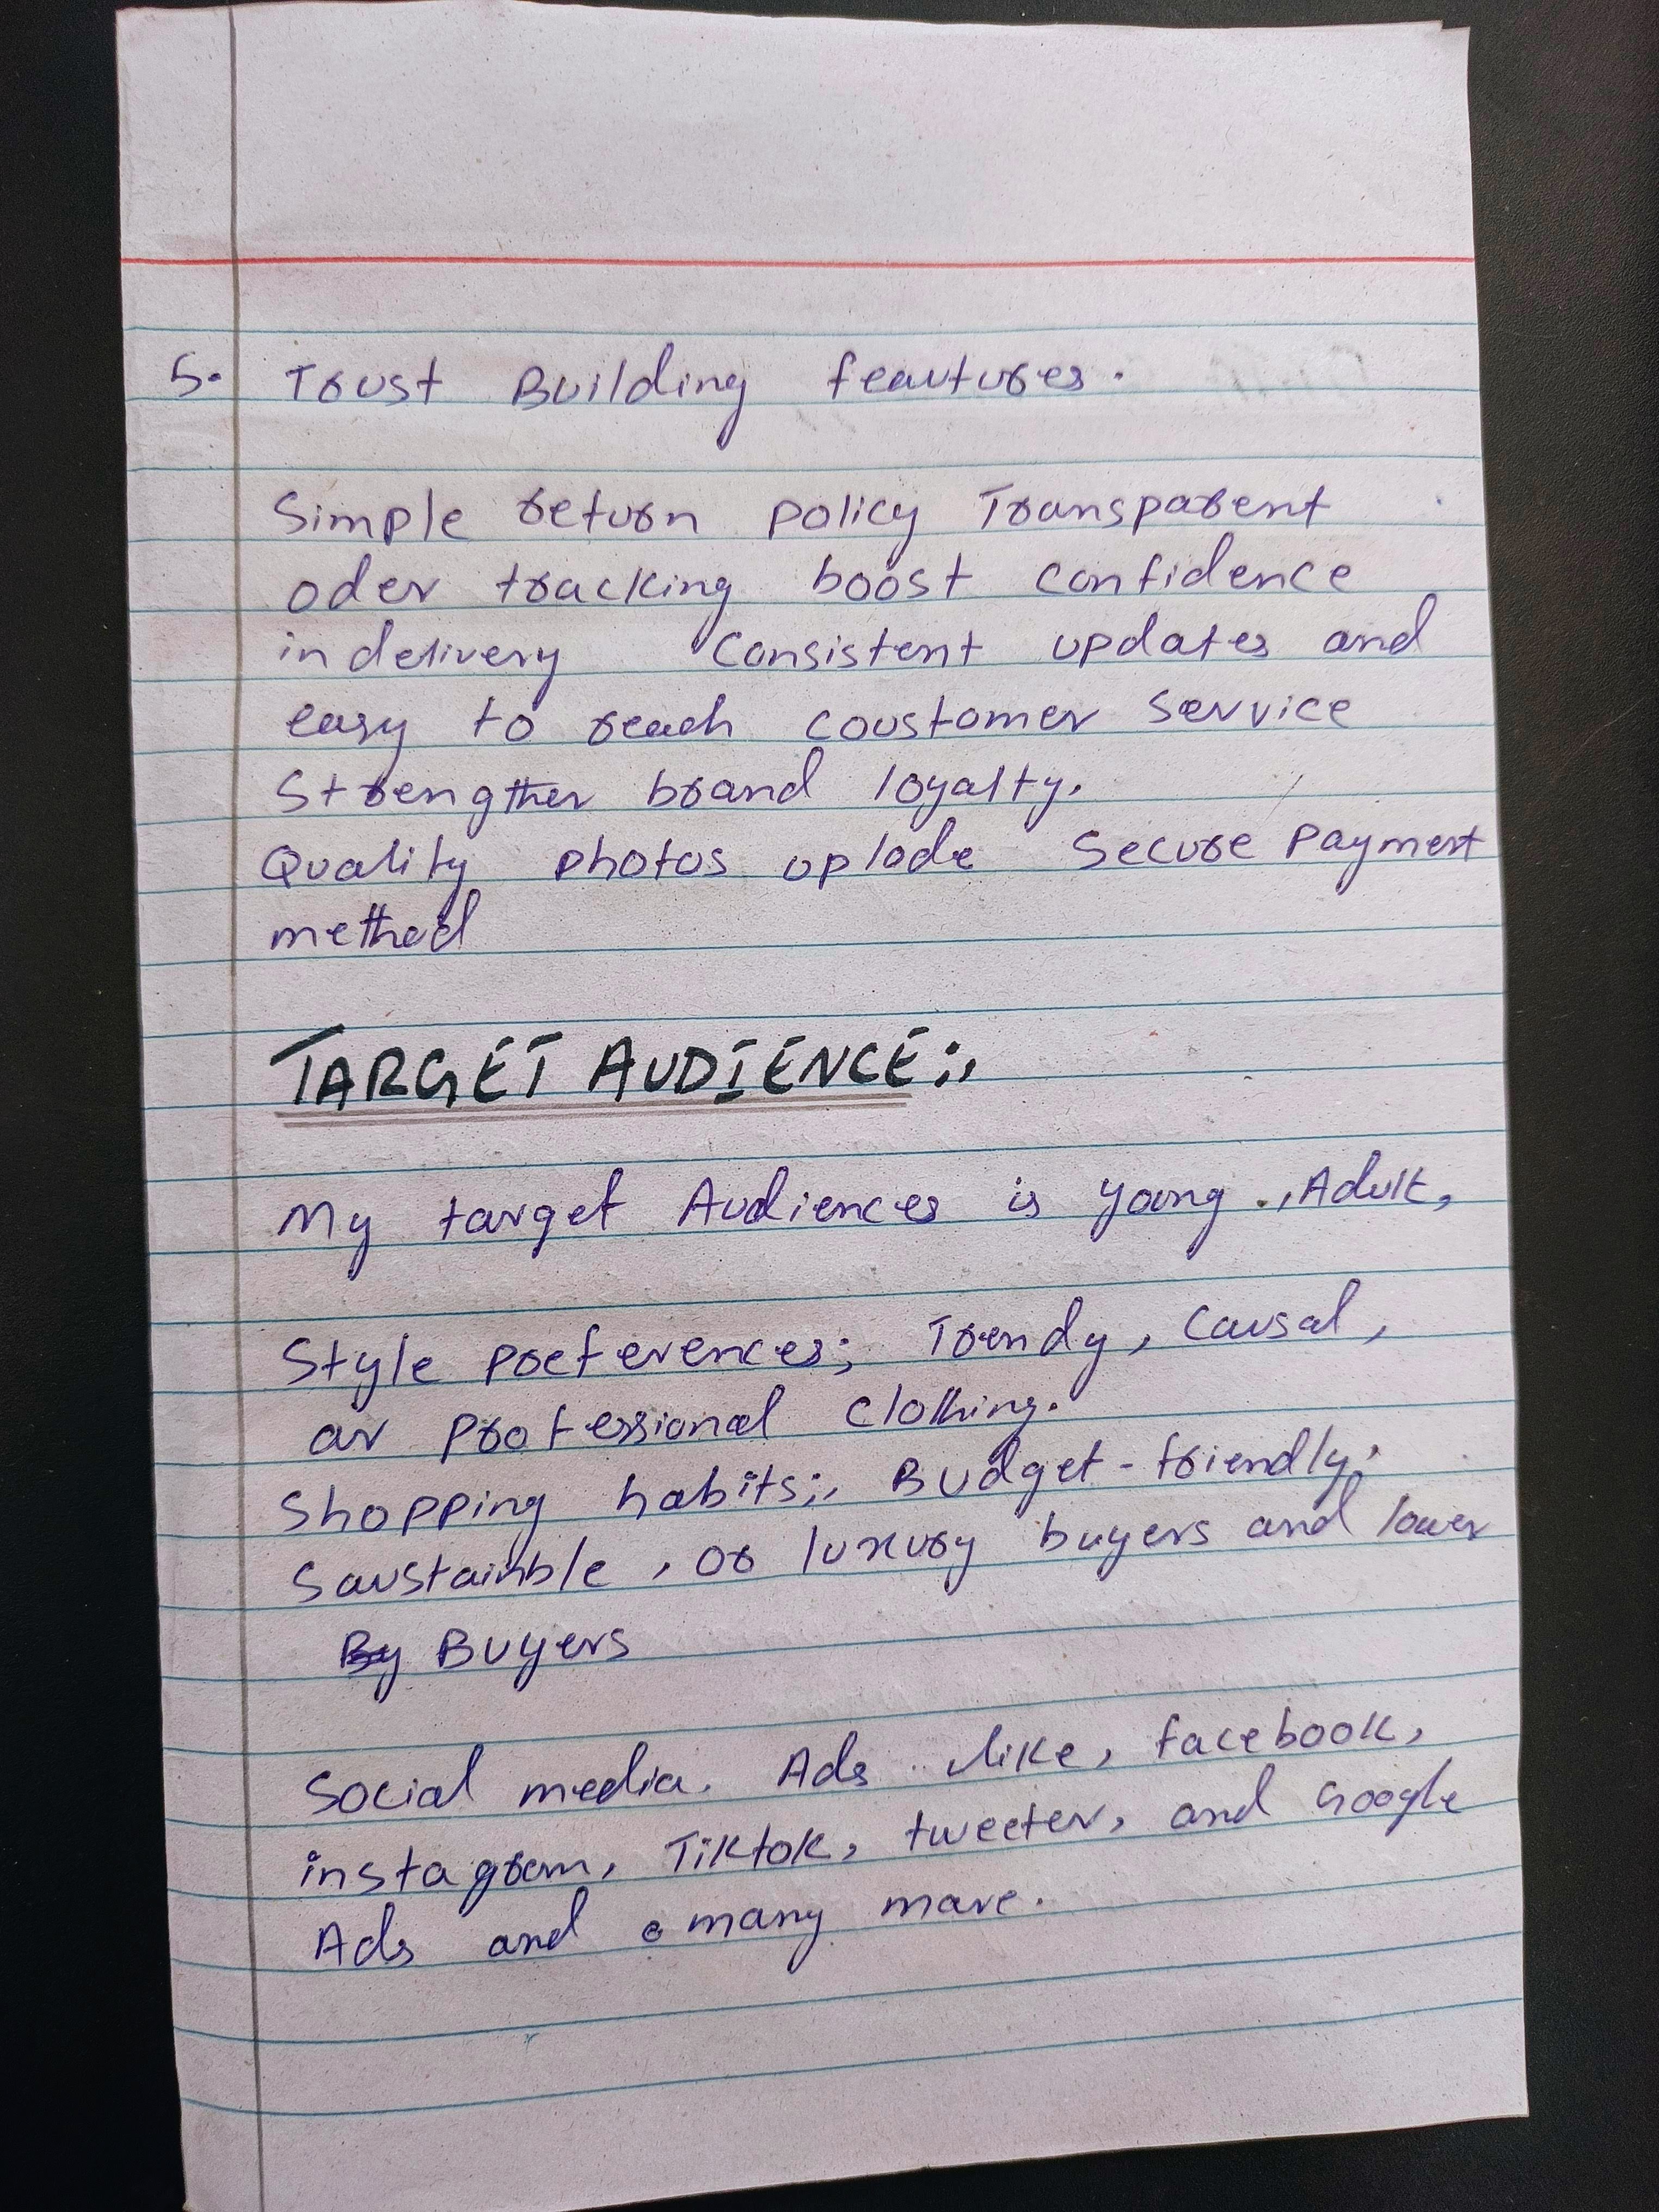 5. Trust Building feautures.
Simple return policy Transparent
oder tracking boost confidence
in delivery Consistent updates and
easy to reach coustomer service
Strengther brand loyalty.
Quality photos uplode Secure Payment
method
TARGET AUDIENCE:,
My target Audiences is young ., Adult,
Style preferences; Trendy, Causal,
or professional clothing.
Shopping habits;, Budget-friendly,
Saustainble, or luxury buyers and lower
By Buyers
Social media. Ads like, facebook,
instagram, Tiktok, tweeter, and Google
Ads and many more.